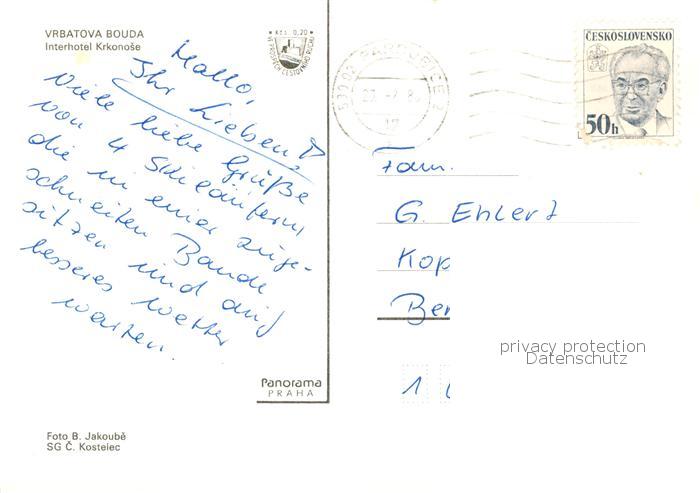 VRBATOVA BOUDA
Interhotel Krkonoše
Kčs. 0,20
VE PROSPĚCH CESTOVNÍHO RUCHU
Hallo,
Ihr Lieben!
Viele liebe Grüße
von 4 Skiläufern
die in einer zuge-
schneiten Baude
sitzen und auf
besseres Wetter
warten.
Panorama
PRAHA
Foto B. Jakoubě
SG Č. Kostelec
PARDUBICE 2
ČESKOSLOVENSKO
50h
Fam.
G. Ehlert
Kop
Ber
1
privacy protection
Datenschutz